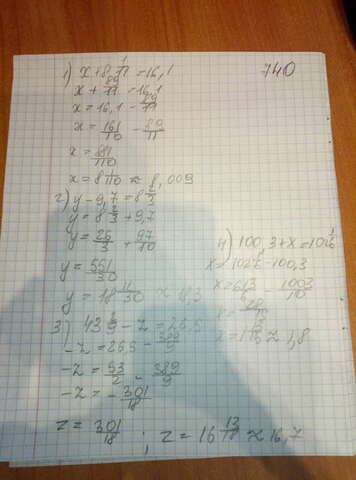 740
1) x + 8 1/11 = 16,1
x + 89/11 = 16,1
x = 16,1 - 89/11
x = 161/10 - 89/11
x = 881/110
x = 8 1/110 ≈ 8,009
2) y - 9,7 = 8 2/3
y = 8 2/3 + 9,7
y = 26/3 + 97/10
y = 551/30
y = 18 11/30 ≈ 18,3
3) 43 2/9 - z = 26,5
-z = 26,5 - 389/9
-z = 53/2 - 389/9
-z = - 301/18
z = 301/18 ; z = 16 13/18 ≈ 16,7
4) 100,3 + x = 102 1/6
x = 102 1/6 - 100,3
x = 613/6 - 1003/10